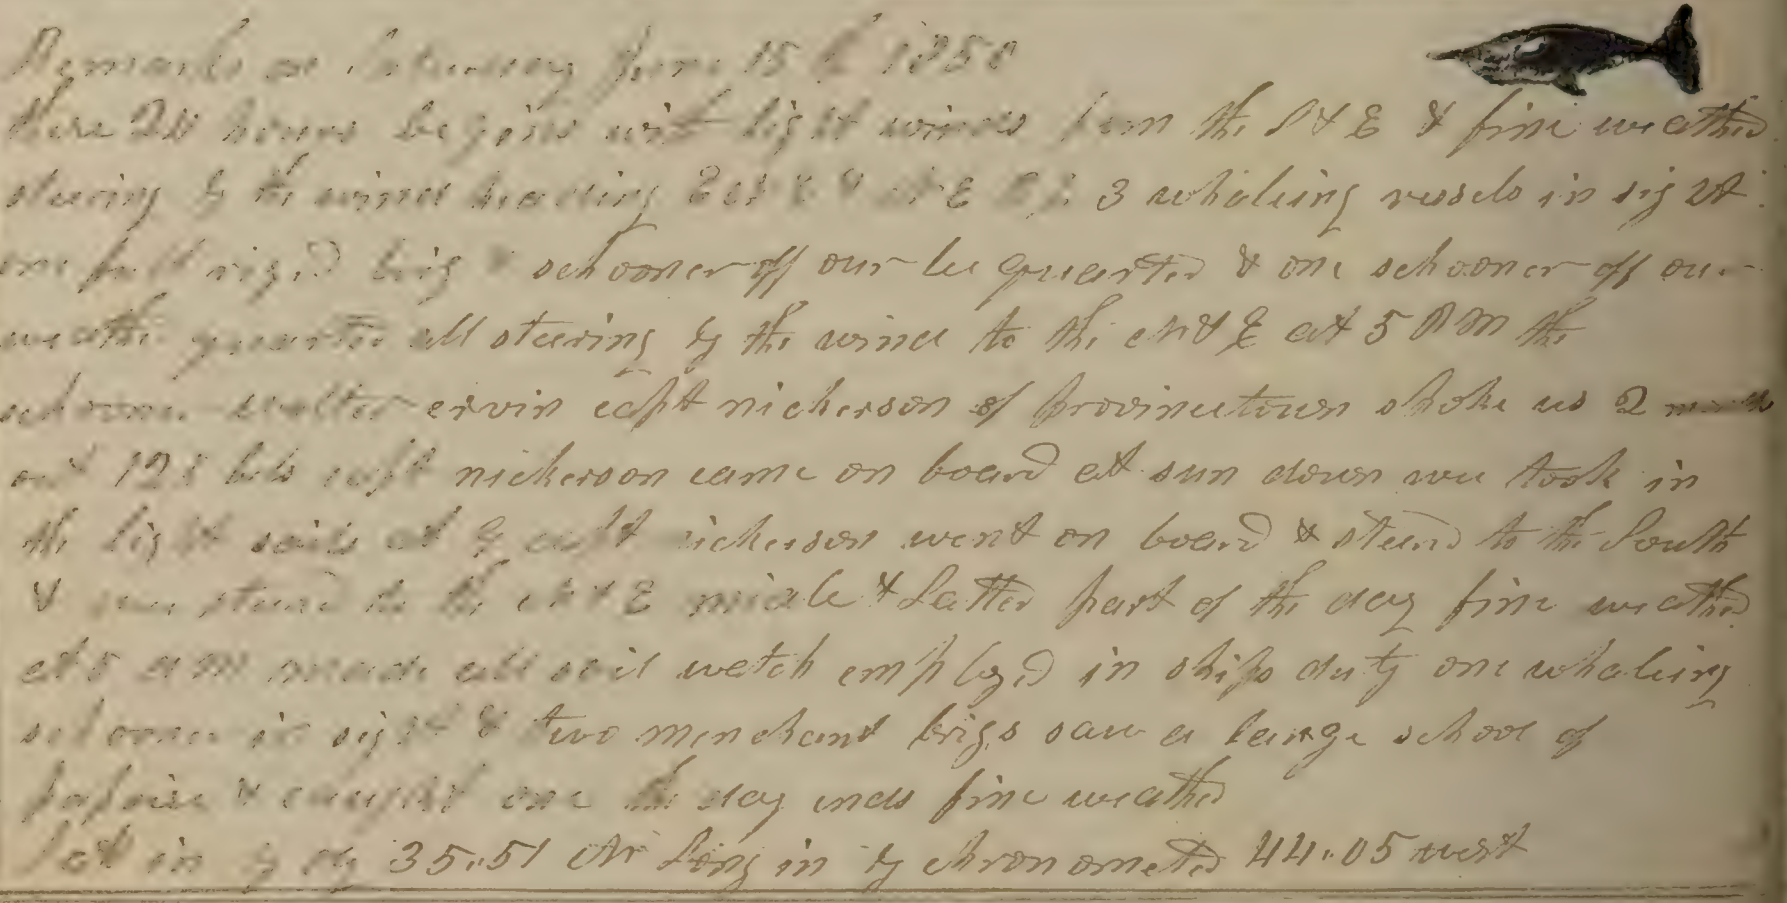 Remarks on Saturday June 15th 1850
these 24 hours begins with light winds from the S & E & fine weather
steering by the wind heading 3 whaleing vessels in sight
one full rigd brig & schooner off our lee quarter & one schooner off our
weather quarter all steering by the wind to the N & E at 5 PM the
schooner walter ervin capt nickerson of provincetown spoke us 2 months
out 128 bbls capt nickerson came on board at sun down wee took in
the light sails at 9 capt nickerson went on board & steerd to the South
& wee steerd to the N & E midle & Latter part of the day fine weather
at 5 am made all sail watch employd in ships duty one whaleing
schooner in sight & two merchant brigs saw a large school of
porpoise & caught one the day ends fine weather
Lat in by 35..51 N Long in by chronometer 44..05 west